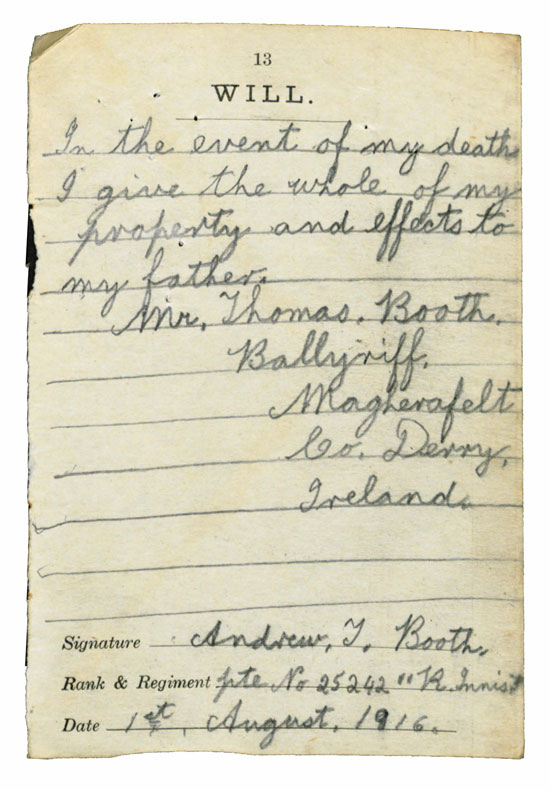 13
WILL.
In the event of my death
I give the whole of my
property and effects to
my father.
Mr. Thomas. Booth.
Ballyriff.
Magherafelt
Co. Derry.
Ireland.
Signature Andrew. T. Booth.
Rank & Regiment pte No 25242 "R. Innis
Date 1st, August. 1916.